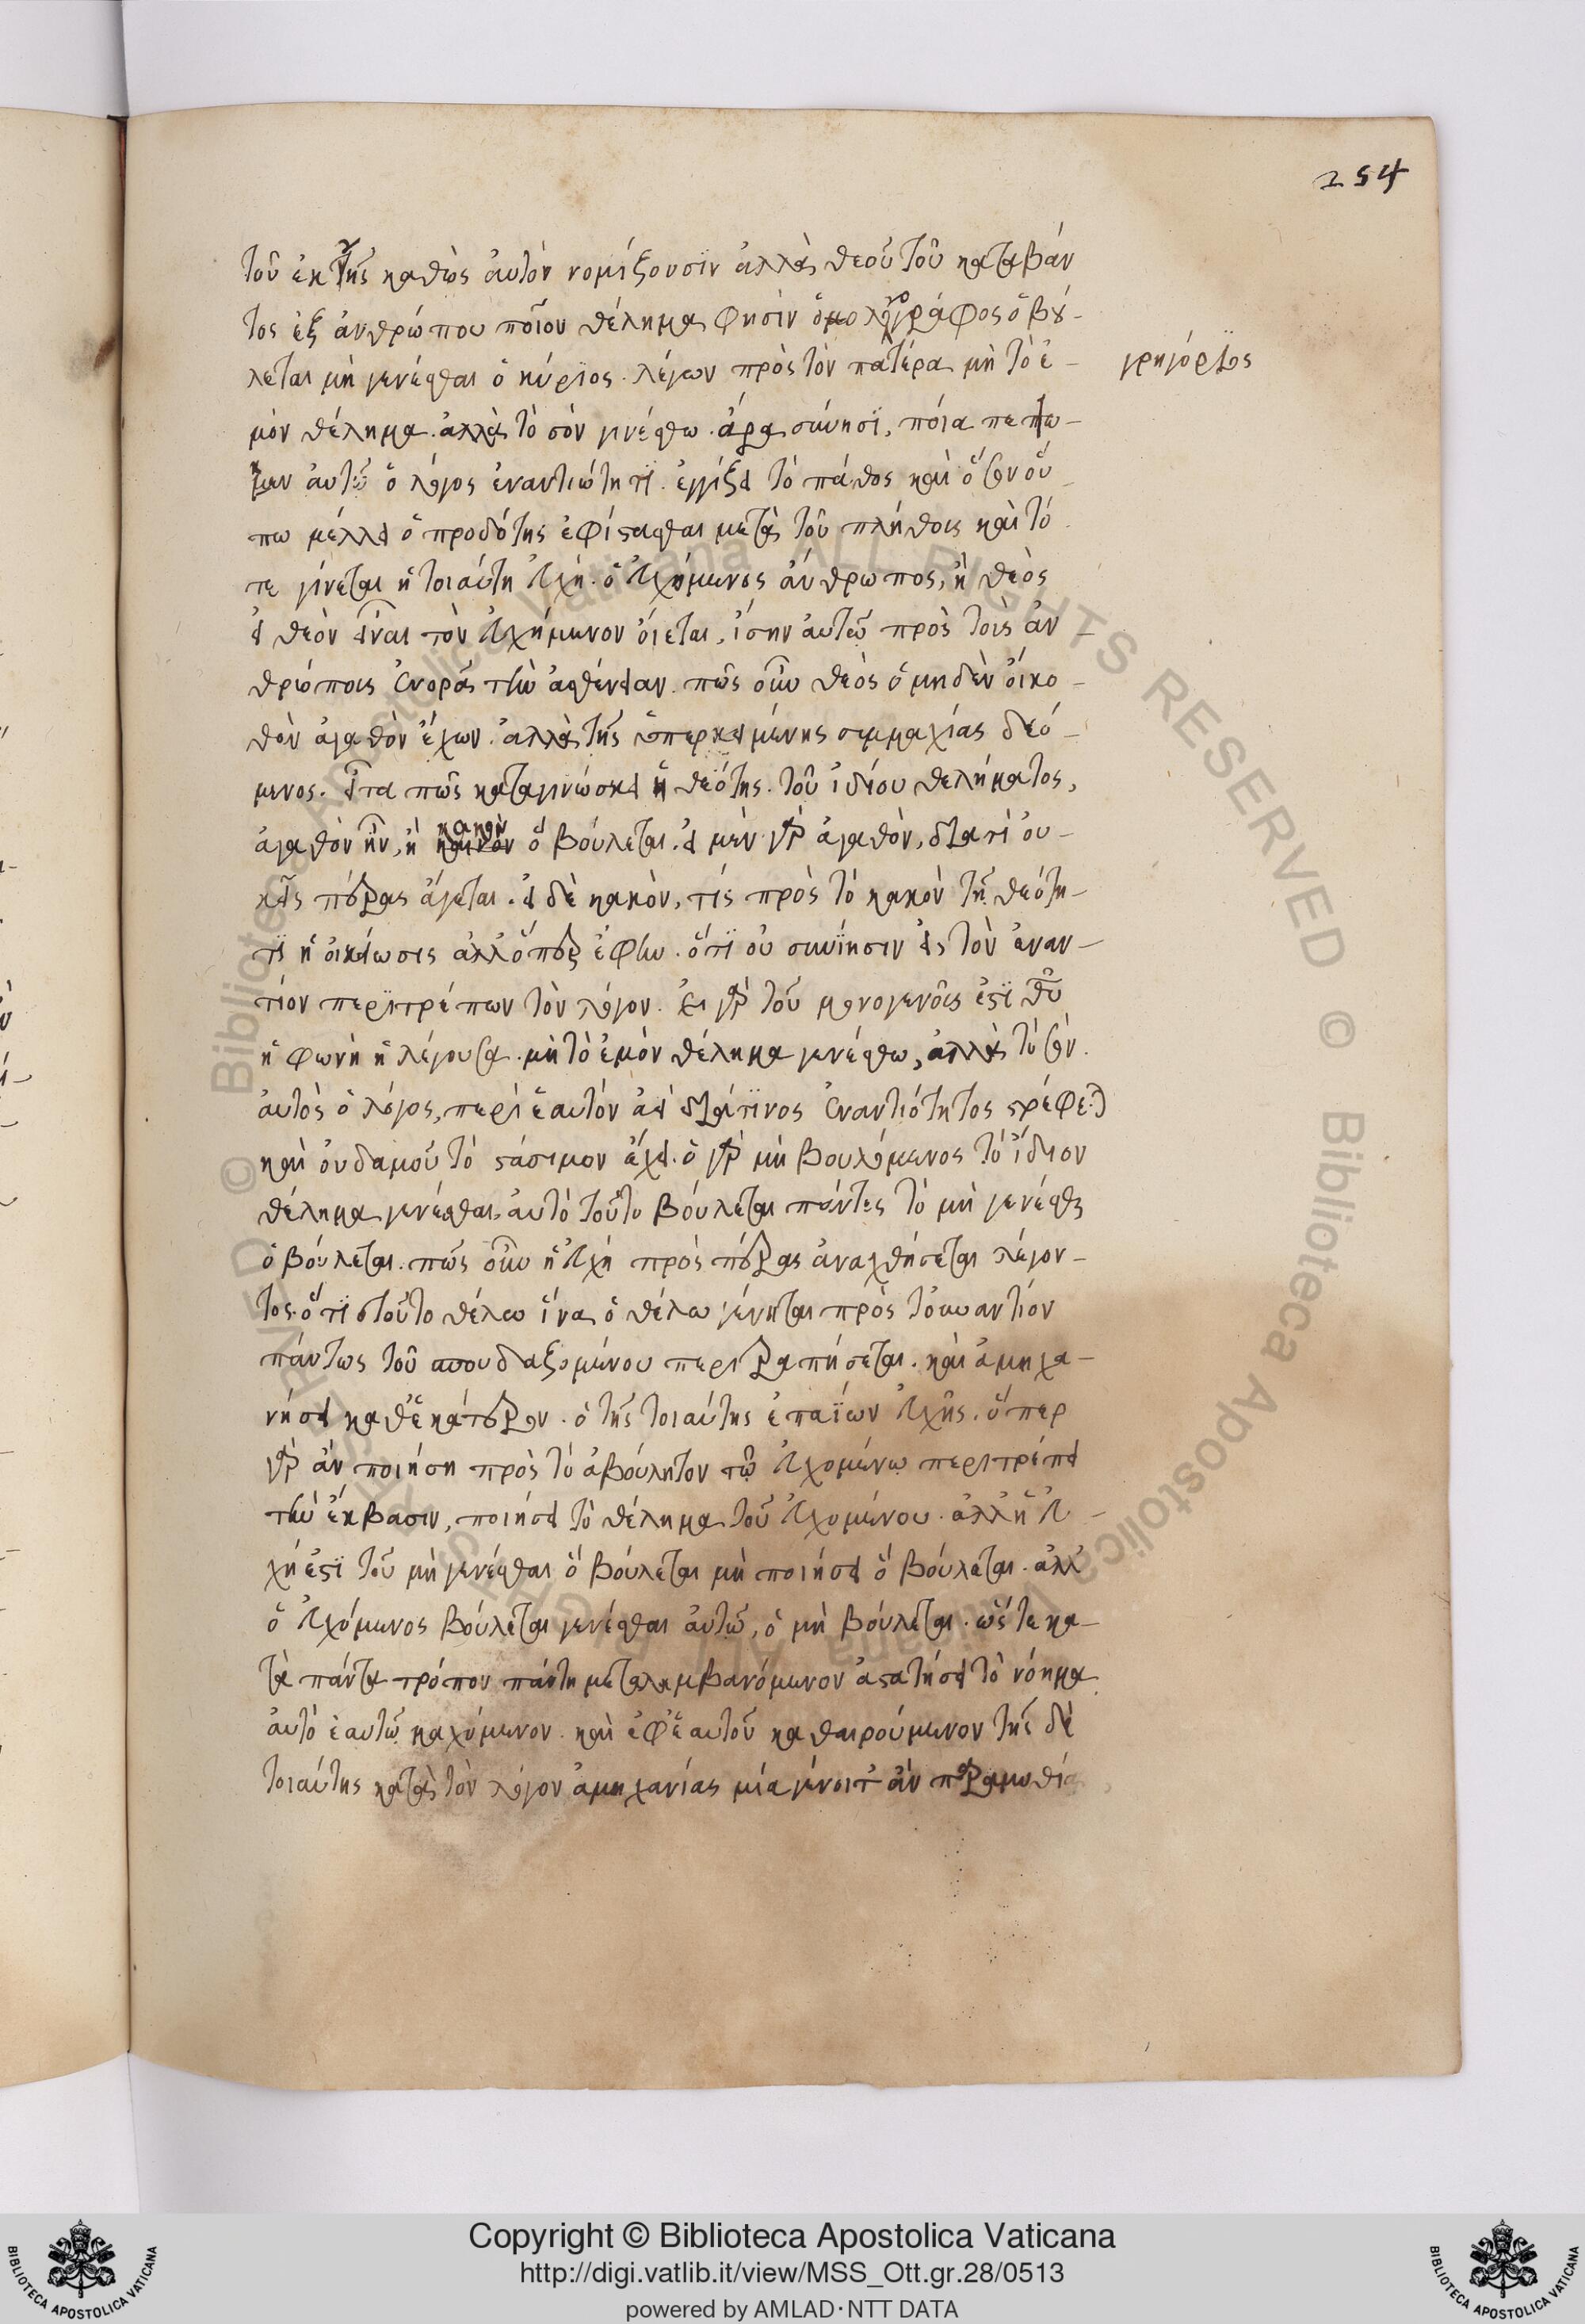 254
τοῦ ἐκ γῆς καθὼς ἀυτὸν νομίζουσϊν ἀλλὰ θεοῦ τοῦ καταβάν
τος ἐξ ἀνθρώπου ποῖον θέλημα φησὶν ὁ λογογράφος ὃ βού-
λεται μὴ γενέσθαι ὁ κύριος. λέγων πρὸς τὸν πατέρα μὴ τὸ ἐ-
γρηγόριος
μὸν θέλημα. ἀλλὰ τὸ σὸν γινέσθω. ἆρα συνησϊ, πόια πεπω-
κεν ἀυτῶ ὁ λόγος ἐναντιώτητϊ. ἐγγίζει τὸ πάθος καὶ ὅσον οὔ
πω μέλλει ὁ προδότης ἐφίστασθαι μετὰ τοῦ πλήθους καὶ τό
τε γίνεται ἡ τοιαύτη εὐχὴ. ὁ εὐχόμενος ἄνθρωπος, ἢ θεὸς
εἰ θεὸν εἶναι τὸν εὐχόμενον ὄιεται, ἴσην ἀυτῶ πρὸς τοῖς ἀν
θρώποις ἐνορᾶ τὴν ἀσθένειαν. πῶς οὖν θεὸς ὁ μηδὲν ὄικο-
θὲν ἀγαθὸν ἔχων. ἀλλὰ τῆς ὑπερκειμένης συμμαχίας δεό-
μενος. εἶτα πῶς καταγινώσκει ἡ θεότης. τοῦ ἰδίου θελήματος,
ἀγαθὸν ἦν, ἢ κακὸν ὃ βούλεται. εἰ μὲν γὰρ ἀγαθὸν, διατί ου-
κ εἰς πέρας ἄγεται. εἰ δὲ κακὸν, τίς πρὸς τὸ κακὸν τῇ θεότη-
τϊ ἡ ὀικείωσις ἀλλ ὅπερ ἔφην. ὅτϊ οὐ συνίησιν εἰς τὸν ἐναν-
τίον περιτρέπων τὸν λόγον. εἰ γὰρ τοῦ μονογενοῦς ἐστϊ θῦ
ἡ φωνὴ ἡ λέγουσα. μὴ τὸ ἐμὸν θέλημα γενέσθω, ἀλλὰ τὸ σὸν.
ἀυτὸς ὁ λόγος, περὶ ἑαυτὸν ἀεὶ διάτϊνος ἐναντιότητος στρέφεται
καὶ ὀυδαμοῦ τὸ στάσιμον ἔχει. ὁ γὰρ μὴ βουλόμενος τὸ ἴδιον
θέλημα γενέσθαι, ἀυτὸ τοῦτο βούλεται πάντως τὸ μὴ γενέσθαι
ὃ βούλεται. πῶς οὖν ἡ εὐχὴ πρὸς πέρας ἀναχθήσεται λέγον-
τος. ὅτϊ τοῦτο θέλω ἵνα ὃ θέλω γένηται πρὸς τὸ ἐναντίον
πάντως τοῦ σπουδαζομένου περιτραπήσεται. καὶ ἀμηχα-
νήσει καθ ἑκάτερον. ὁ τῆς τοιαύτης ἐπαΐων εὐχῆς. ὅπερ
γὰρ ἂν ποιήση πρὸς τὸ ἀβούλητον τῶ εὐχομένω περιτρέπει
τὴν ἔκβασιν, ποιήσει τὸ θέλημα τοῦ εὐχομένου. ἀλλ ἡ εὐ-
χή ἐστϊ τοῦ μὴ γενέσθαι ὃ βούλεται μὴ ποιήσει ὃ βούλεται. ἀλλ
ὁ εὐχόμενος βούλεται γενέσθαι ἀυτῶ, ὃ μὴ βούλεται. ὥστε κα-
τὰ πάντα τρόπον πάντη μεταλαμβανόμενον ἀστατήσει τὸ νόημα
ἀυτὸ ἑαυτῶ μαχόμενον. καὶ ἐφ ἑαυτοῦ καθαιρούμενον τῆς δὲ
τοιαύτης κατὰ τὸν λόγον ἀμηχανίας μία γένοιτ ἂν παραμυθία
Copyright © Biblioteca Apostolica Vaticana
http://digi.vatlib.it/view/MSS_Ott.gr.28/0513
powered by AMLAD·NTT DATA
BIBLIOTECA APOSTOLICA VATICANA
BIBLIOTECA APOSTOLICA VATICANA